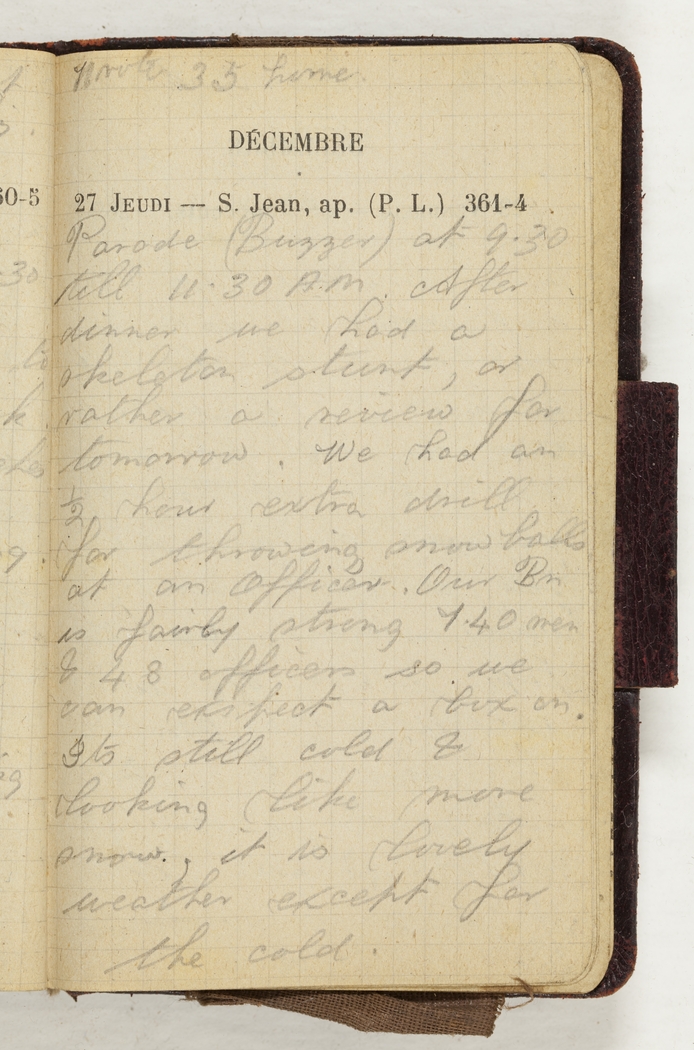 Wrote 35 home
DÉCEMBRE
27 JEUDI — S. Jean, ap. (P. L.) 361-4
Parade (Buzzer) at 9.30
till 11.30 A.M. After
dinner we had a
skeleton stunt, or
rather a review for
tomorrow. We had an
½ hour extra drill
for throwing snow balls
at an Officer. Our Bn
is fairly strong 740 men
& 48 officers so we
can exspect a box on.
Its still cold &
looking like more
snow, it is lovely
weather except for
the cold.
60-5
30